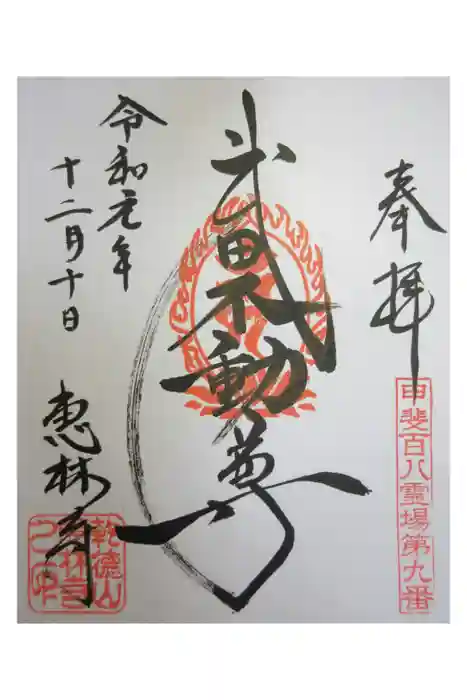 奉拝
甲斐百八霊場第九番
武田不動尊
令和元年
十二月十日
恵林寺
乾徳山